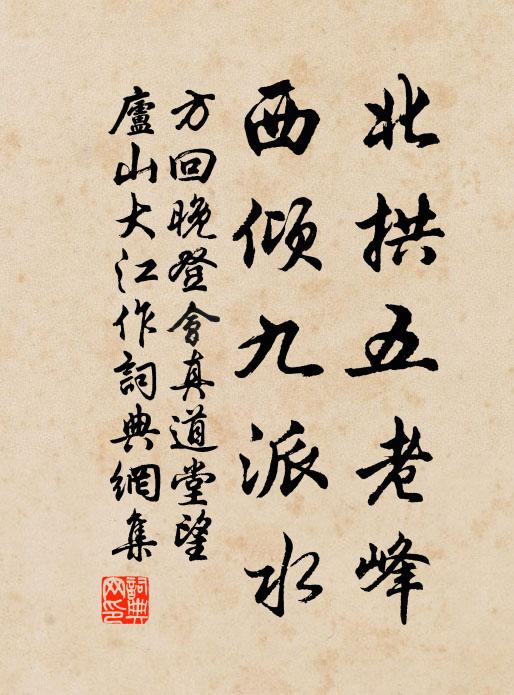 北拱五老峰
西傾九派水
方回晚登會真道堂望
廬山大江作詞典網集
詞典網印